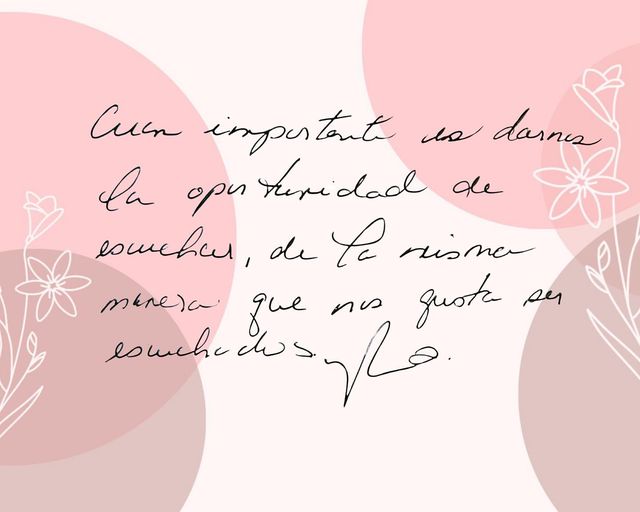 Cuan importante es darnos
la oportunidad de
escuchar, de la misma
manera que nos gusta ser
escuchados.